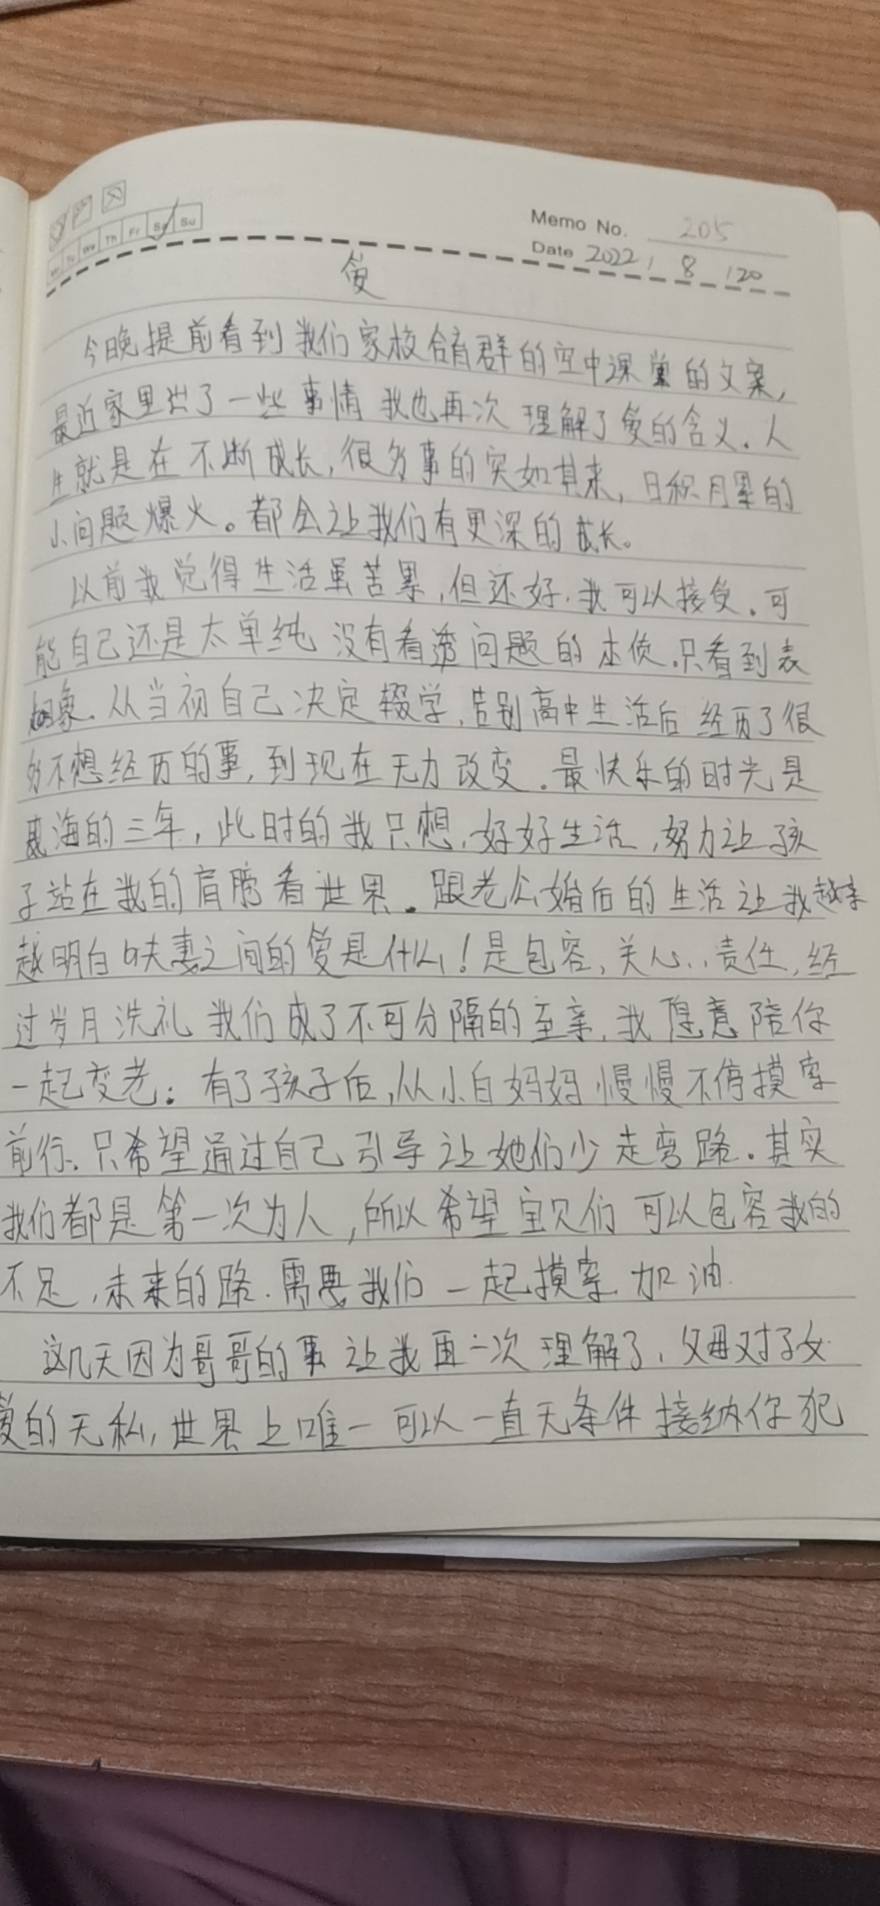 Memo No. 205
Mo Tu We Th Fr Sa Su
Date 2022 / 8 / 20
爱
今晚提前看到我们家校合育群的空中课堂的文案,
最近家里出了一些事情 我也再次 理解了爱的含义. 人
生就是在不断成长, 很多事的突如其来, 日积月累的
小问题爆火。都会让我们有更深的成长。
以前我觉得生活虽苦累, 但还好. 我可以接受. 可
能自己还是太单纯 没有看透问题的本质. 只看到表
象. 从当初自己决定辍学, 告别高中生活后 经历了很
多不想经历的事, 到现在无力改变. 最快乐的时光是
海的三年, 此时的我只想, 好好生活, 努力让孩
子站在我的肩膀看世界. 跟老公婚后的生活让我越来
越明白 夫妻之间的爱是什么! 是包容, 关心, 责任, 经
过岁月洗礼 我们成了不可分隔的至亲, 我愿意陪你
一起变老; 有了孩子后, 从小白妈妈 慢慢不停摸索
前行. 只希望通过自己引导让她们少走弯路. 其实
我们都是第一次为人, 所以希望宝贝们 可以包容我的
不足, 未来的路. 需要我们一起摸索 加油.
这几天因为哥哥的事 让我再一次 理解了, 父母对子女
爱的无私, 世界上唯一可以一直无条件接纳你犯